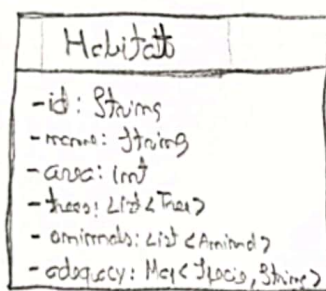 Habitat
-id: String
-name: String
-area: int
-trees: List<Tree>
-animals: List<Animal>
-adequacy: Map<Specie, String>